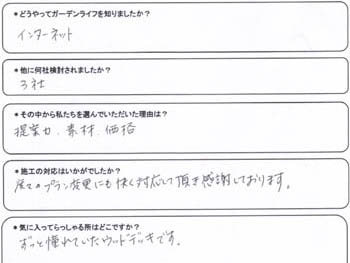 *どうやってガーデンライフを知りましたか?
インターネット
*他に何社検討されましたか?
3社
*その中から私たちを選んでいただいた理由は?
提案力、素材、価格
*施工の対応はいかがでしたか?
度々のプラン変更にも快く対応して頂き感謝しております。
*気に入ってらっしゃる所はどこですか?
ずっと憧れていたウッドデッキです。